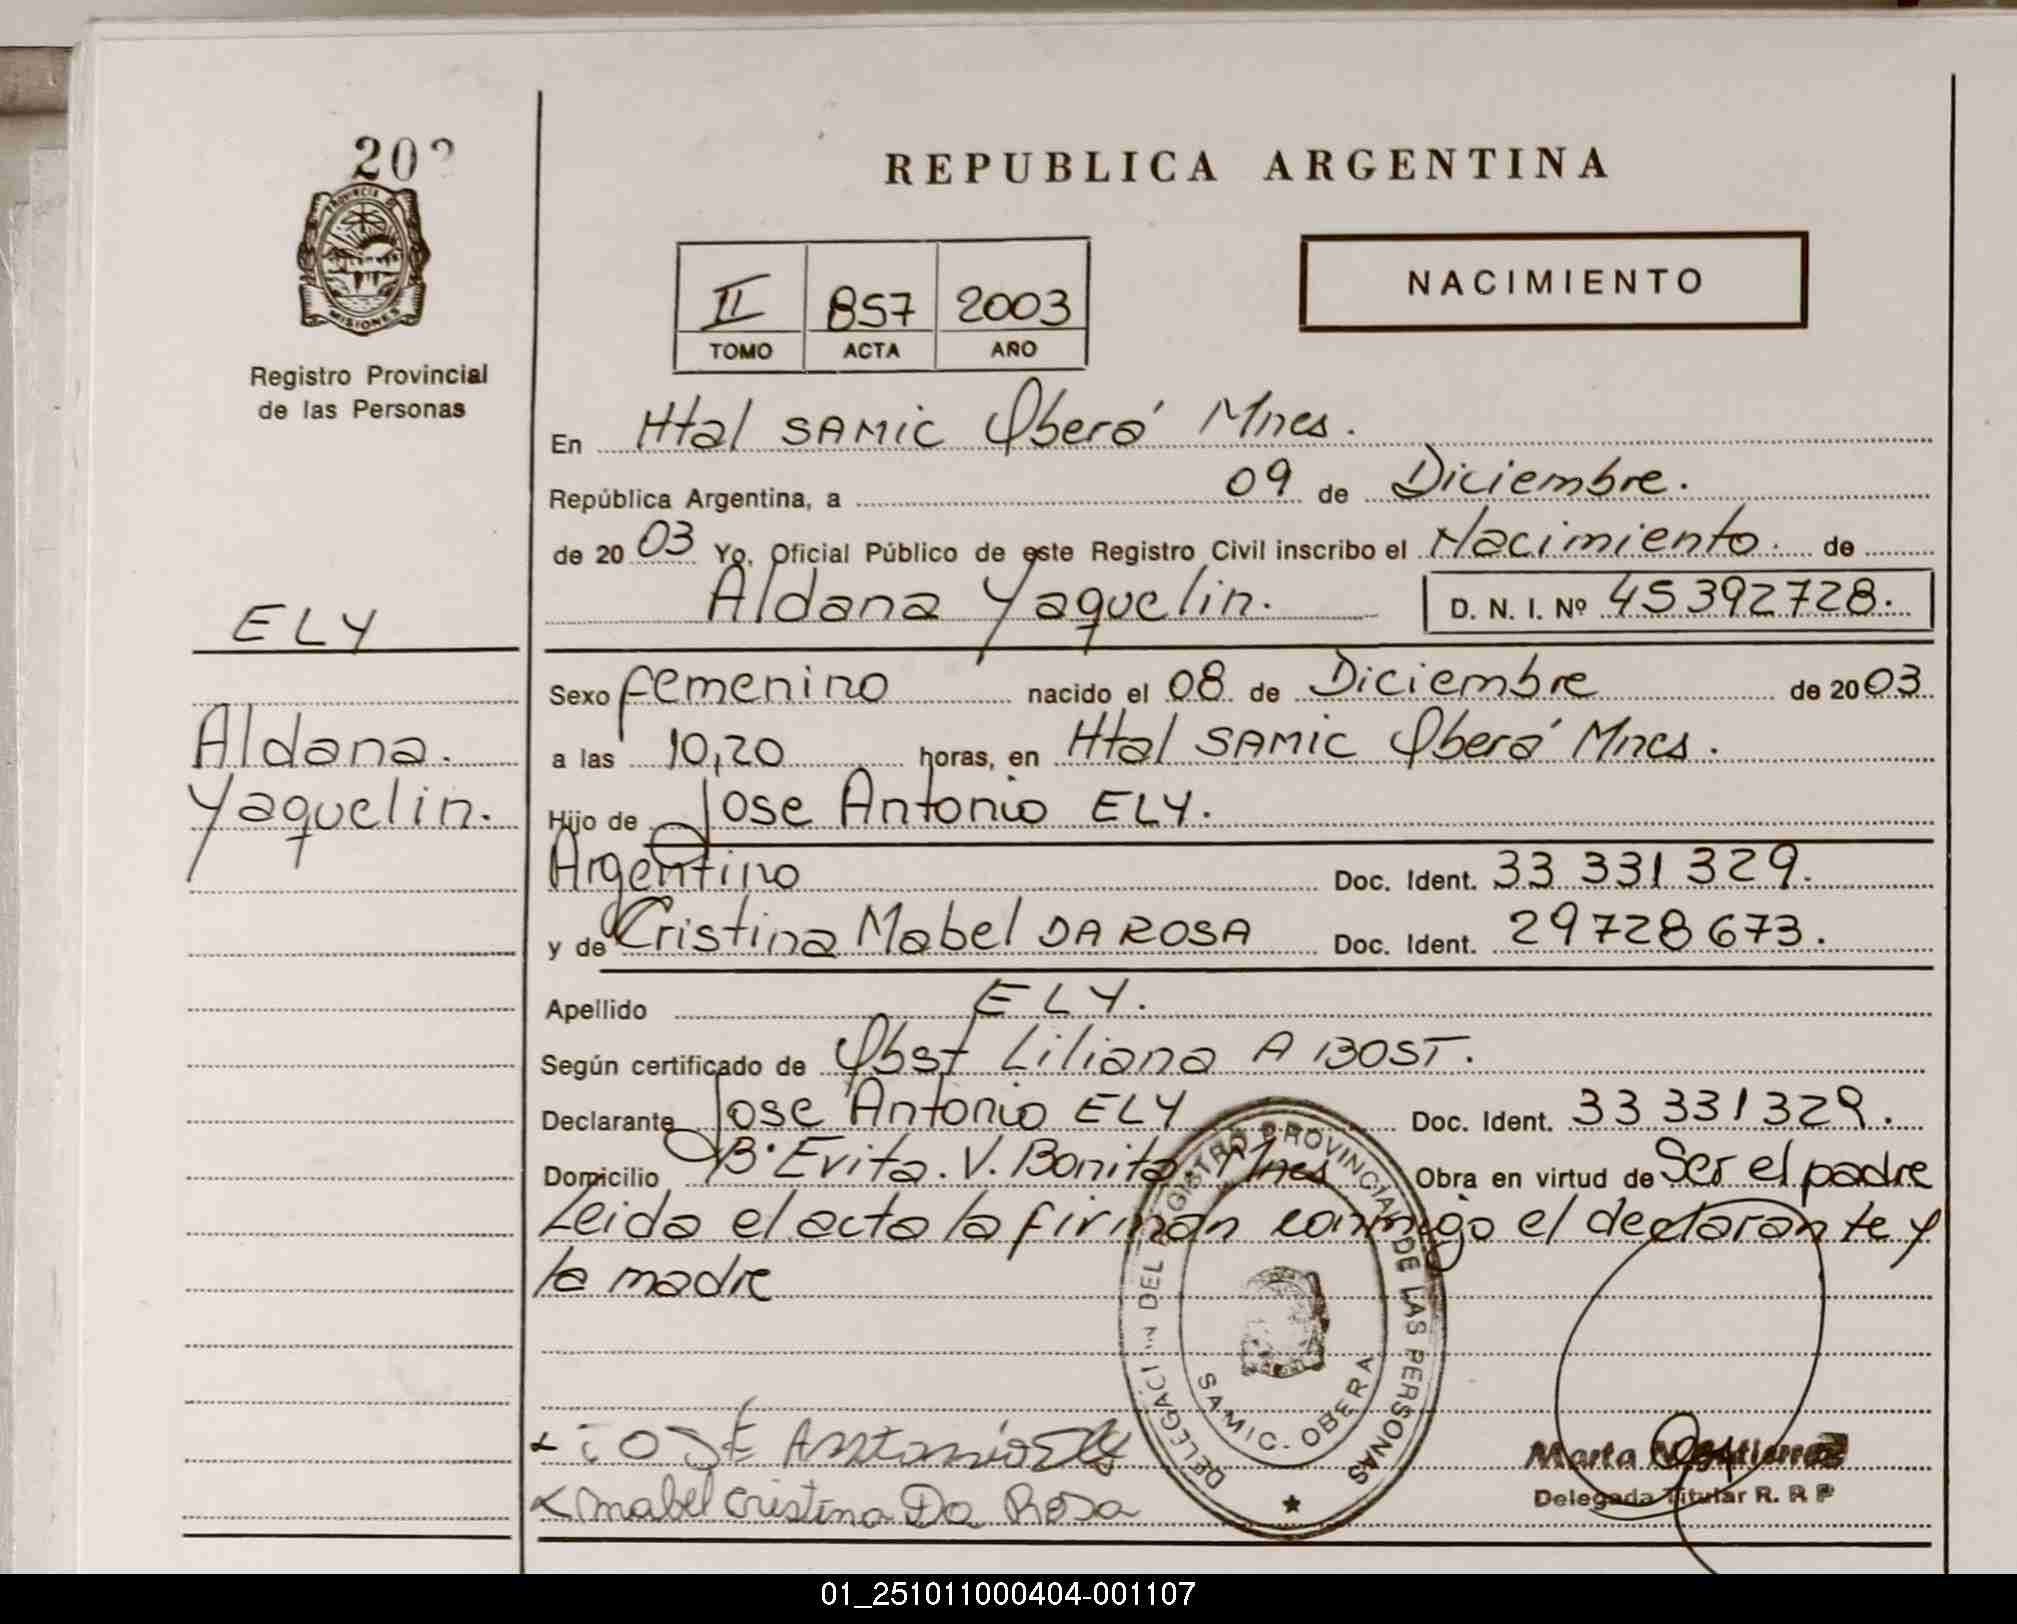 20
PROVINCIA DE
MISIONES
Registro Provincial
de las Personas
ELY
Aldana.
Yaquelin.
REPUBLICA ARGENTINA
II 857 2003
TOMO ACTA AÑO
NACIMIENTO
En Htal SAMIC Oberá Mnes.
República Argentina, a 09 de Diciembre.
de 2003 Yo, Oficial Público de este Registro Civil inscribo el Nacimiento. de
Aldana Yaquelin. D. N. I. Nº 45392728.
Sexo femenino nacido el 08 de Diciembre de 2003
a las 10,20 horas, en Htal SAMIC Oberá Mnes.
Hijo de Jose Antonio ELY.
Argentino Doc. Ident. 33 331 329.
y de Cristina Mabel DA ROSA Doc. Ident. 29728673.
Apellido ELY.
Según certificado de Obst Liliana A BOST.
Declarante Jose Antonio ELY Doc. Ident. 33 331 329.
Domicilio Bº Evita. V. Bonita. Mnes Obra en virtud de Ser el padre
Leida el acta la firman conmigo el declarante y
la madre
DELEGACION DEL REGISTRO PROVINCIAL DE LAS PERSONAS
SAMIC. OBERA
JOSE Antonio Ely
Mabel cristina Da Rosa
Marta Gutierrez
Delegada Titular R. P. P
01_251011000404-001107